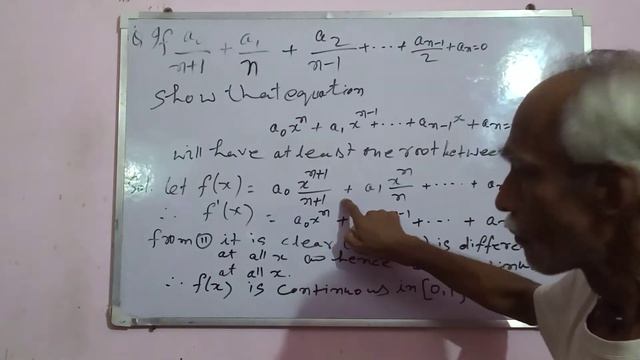 i, If a₀/n+1 + a₁/n + a₂/n-1 + ... + aₙ₋₁/2 + aₙ = 0
Show that equation
a₀xⁿ + a₁xⁿ⁻¹ + ... + aₙ₋₁x + aₙ =
will have at least one root between
Sol: Let f(x) = a₀ xⁿ⁺¹/n+1 + a₁ xⁿ/n + .... + a
∴ f'(x) = a₀xⁿ + -1 + ... + a
from (11) it is clear is differe
at all x hence
at all x.
∴ f(x) is continuous in [0,1]